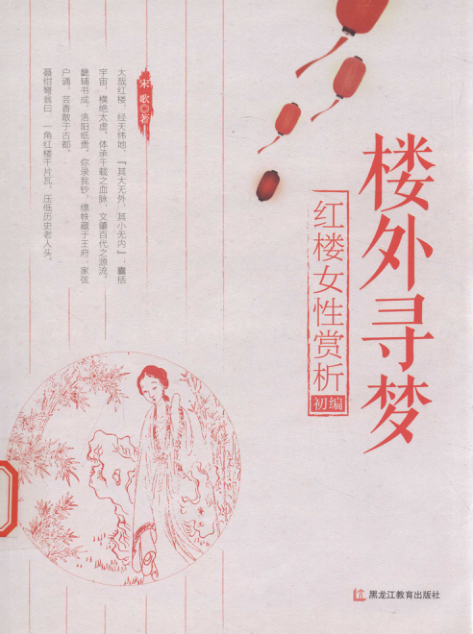 楼外寻梦
红楼女性赏析
初编
宋歌 著
大哉红楼，经天纬地，『其大无外，其小无内』，囊括
宇宙，横绝太虚。体承千载之血脉，文肇百代之源流。
甕辅书成，洛阳纸贵，你录我钞，缥帙藏于王府，家弦
户诵，芸香散于古都。
聂绀弩翁曰，一角红楼千片瓦，压低历史老人头。
黑龙江教育出版社